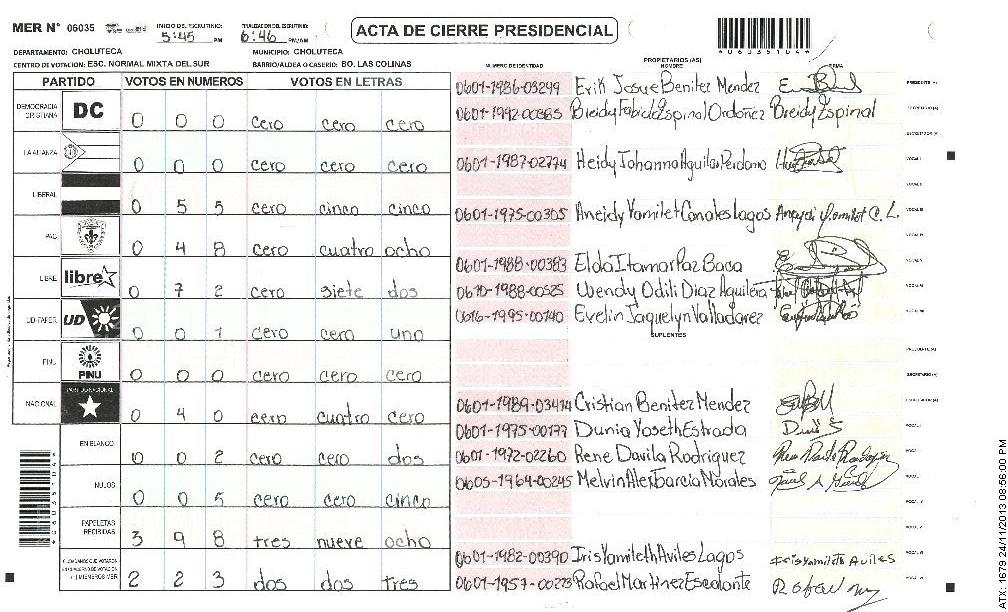 MER N° 06035 INICIO DEL ESCRUTINIO: 5:45 PM FINALIZACION DEL ESCRUTINIO: 6:46 PM/AM ACTA DE CIERRE PRESIDENCIAL
DEPARTAMENTO: CHOLUTECA MUNICIPIO: CHOLUTECA
CENTRO DE VOTACION: ESC. NORMAL MIXTA DEL SUR BARRIO/ALDEA O CASERIO: BO. LAS COLINAS
PARTIDO VOTOS EN NUMEROS VOTOS EN LETRAS
DEMOCRACIA CRISTIANA DC 0 0 0 cero cero cero
LA ALIANZA 0 0 0 cero cero cero
LIBERAL 0 5 5 cero cinco cinco
PAC 0 4 8 cero cuatro ocho
LIBRE libre 0 7 2 cero siete dos
UD-FAPER UD 0 0 1 cero cero uno
PINU PINU 0 0 0 cero cero cero
NACIONAL PARTIDO NACIONAL 0 4 0 cero cuatro cero
EN BLANCO 0 0 2 cero cero dos
NULOS 0 0 5 cero cero cinco
PAPELETAS RECIBIDAS 3 9 8 tres nueve ocho
2 2 3 dos dos tres
PROPIETARIOS (AS)
NUMERO DE IDENTIDAD NOMBRE FIRMA
0601-1986-03299 Erik Josue Benitez Mendez PRESIDENTE (A)
0601-1992-00365 Breidy Fabiola Espinal Ordoñez Breidy Espinal SECRETARIO (A)
ESCRUTADOR (A)
0601-1987-02774 Heidy Johanna Aguilar Perdomo VOCAL I
VOCAL II
0601-1975-00305 Aneidy Yamilet Canales Lagos VOCAL III
VOCAL IV
0601-1988-00383 Elda Itamar Paz Baca VOCAL V
0610-1988-00525 Wendy Odili Diaz Aguilera
0616-1995-00140 Evelin Jaquelyn Valladarez
SUPLENTES
PRESIDENTE (A)
SECRETARIO (A)
0601-1989-03414 Cristian Benitez Mendez ESCRUTADOR (A)
0601-1975-00177 Dunia Yoseth Estrada
0601-1972-02260 Rene Davila Rodriguez
0605-1964-00245 Melvin Alex Garcia Morales
0601-1982-00390 Iris Yamileth Aviles Lagos Iris Yamileth Aviles
0601-1957-00273 Rafael Martinez Escalante
06035104
ATX: 1679 24/11/2013 08:56:00 PM